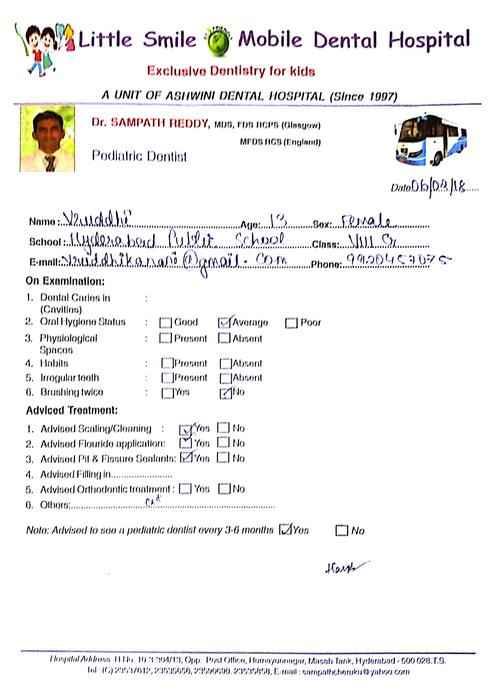 Little Smile Mobile Dental Hospital
Exclusive Dentistry for kids
A UNIT OF ASHWINI DENTAL HOSPITAL (Since 1997)
Dr. SAMPATH REDDY, MDS, FDS RCPS (Glasgow)
MFDS RCS (England)
Pediatric Dentist
Date 06/03/18
Name: Vruddhi Age: 13 Sex: Female
School: Hyderabad Public School Class: VIII G
E-mail: vruddhikanani@gmail.com Phone:
On Examination:
1. Dental Caries in :
(Cavities)
2. Oral Hygiene Status : Good Average Poor
3. Physiological : Present Absent
Spaces
4. Habits : Present Absent
5. Irregular teeth : Present Absent
6. Brushing twice : Yes No
Adviced Treatment:
1. Advised Scaling/Cleaning : Yes No
2. Advised Flouride application: Yes No
3. Advised Pit & Fissure Sealants: Yes No
4. Advised Filling in
5. Advised Orthodontic treatment: Yes No
6. Others:
Note: Advised to see a pediatric dentist every 3-6 months Yes No
Hospital Address: H.No. 10-3-304/13, Opp. Post Office, Humayunnagar, Masab Tank, Hyderabad - 500 028.T.S.